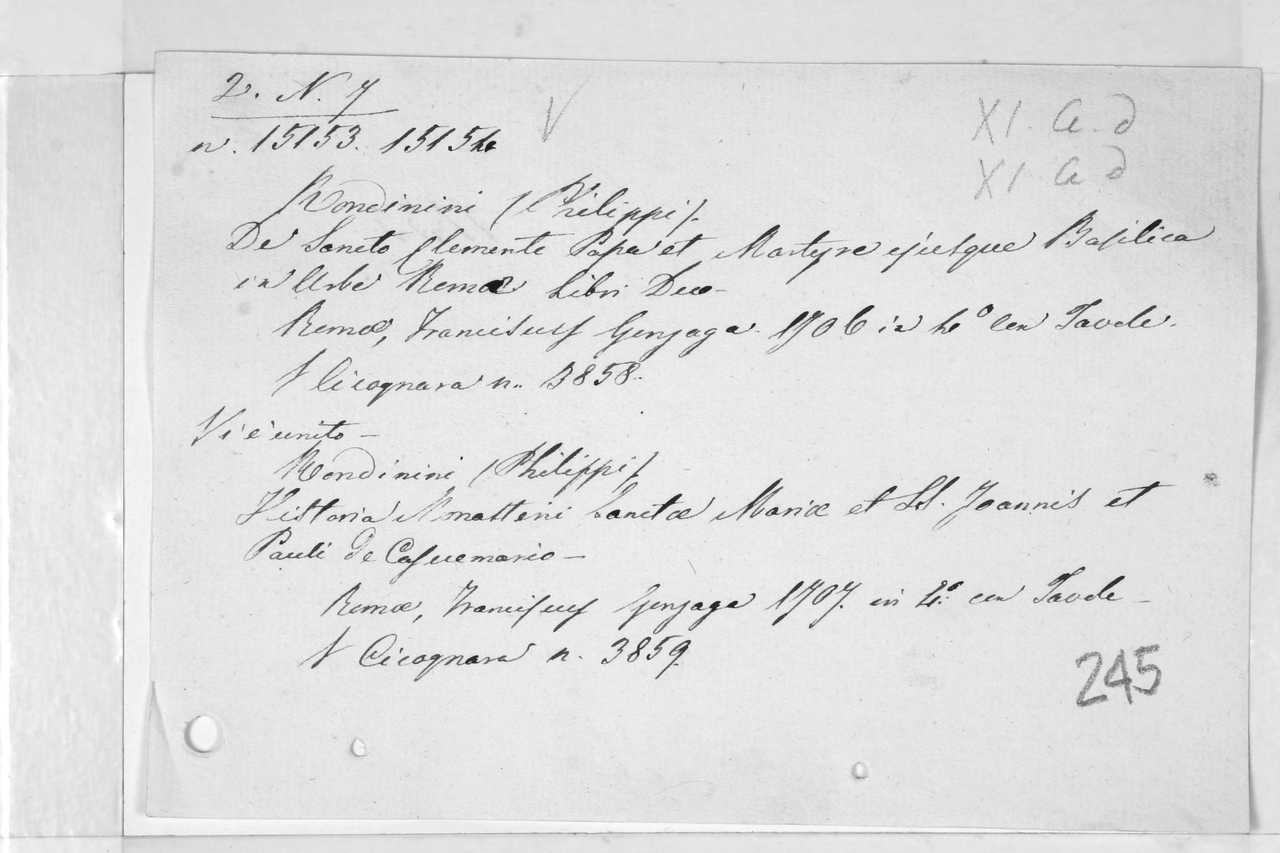 2. N. 7
n. 15153. 15154
V
XI. a. d
XI a d
Rondinini (Philippi).
De Sancto Clemente Papa et Martyre ejusque Basilica
in Urbe Romæ Libri Duo -
Romæ, Franciscus Gonzaga 1706 in 4° con Tavole.
V Cicognara n. 3858.
Vi è unito -
Rondinini (Philippi)
Historia Monasterii Sanctæ Mariæ et SS. Joannis et
Pauli de Casuemario -
Romæ, Franciscus Gonzaga 1707. in 4.° con Tavole -
V Cicognara n. 3859.
245